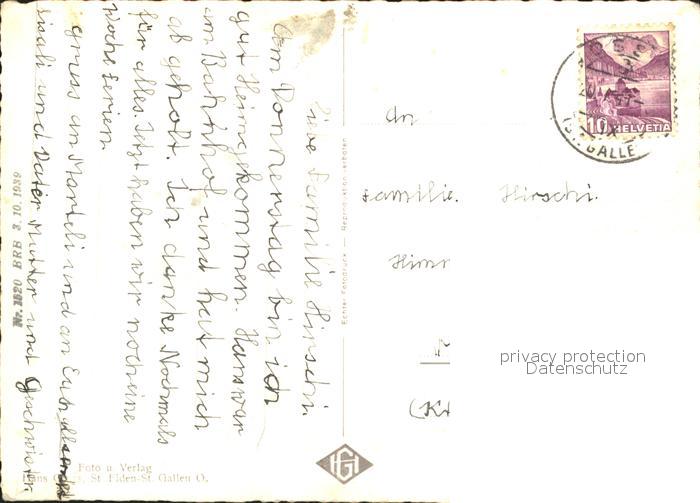 Liebe Familie Hirschi.
Am Donnerstag bin ich
gut Heimgekommen. Hans war
am Bahnhof und hat mich
ab geholt. Ich danke Nochmals
für alles. Jetzt haben wir noch eine
woche ferien.
gruss an Marteli und an Euch alle
und Vater Mutter und Geschwister.
An
Familie. Hirschi.
HELVETIA
10
GALLE
Echte Fotodruck — Reproduktion verboten
Nr. 1820 BRB 3. 10. 1939
Foto u. Verlag
Hans St. Fiden-St. Gallen O.
HG
privacy protection
Datenschutz